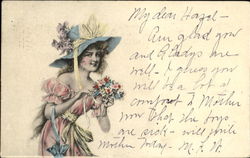 My dear Hazel -
Am glad you
and Gladys are
well. I guess you
will be a lot of
comfort to Mother
now that the boys
are sick - will write
Mother today -